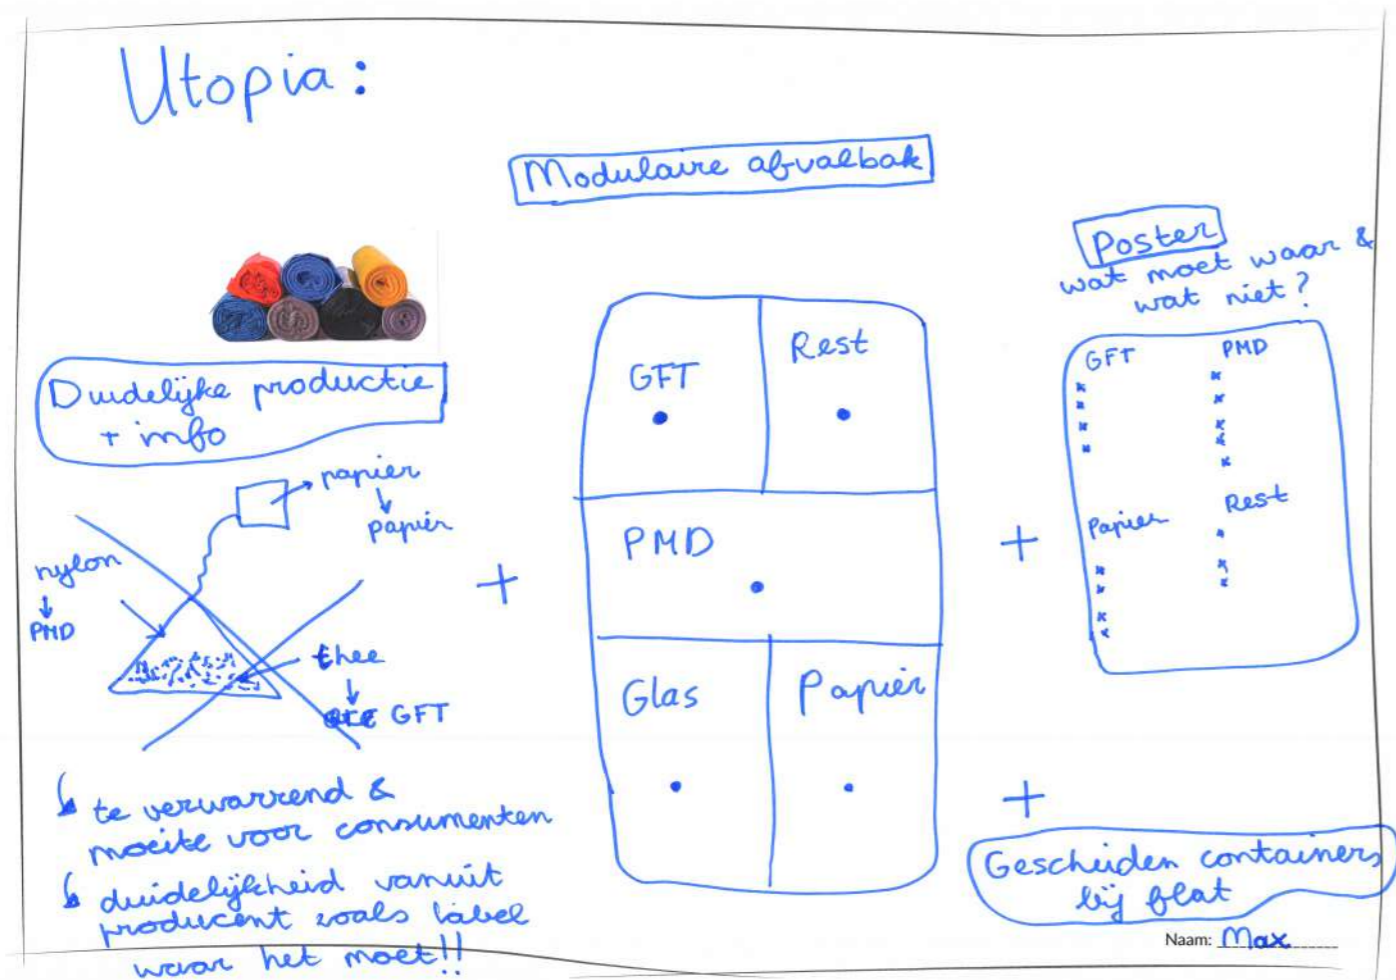 Utopia:
Modulaire afvalbak
Poster
wat moet waar &
wat niet?
Duidelijke productie
+ info
papier
papier
nylon
PMD
thee
GFT
te verwarrend &
moeite voor consumenten
duidelijkheid vanuit
producent zoals label
waar het moet!!
+
GFT
Rest
PMD
Glas
Papier
+
GFT PMD
Papier Rest
+
Gescheiden containers
bij flat
Naam: Max